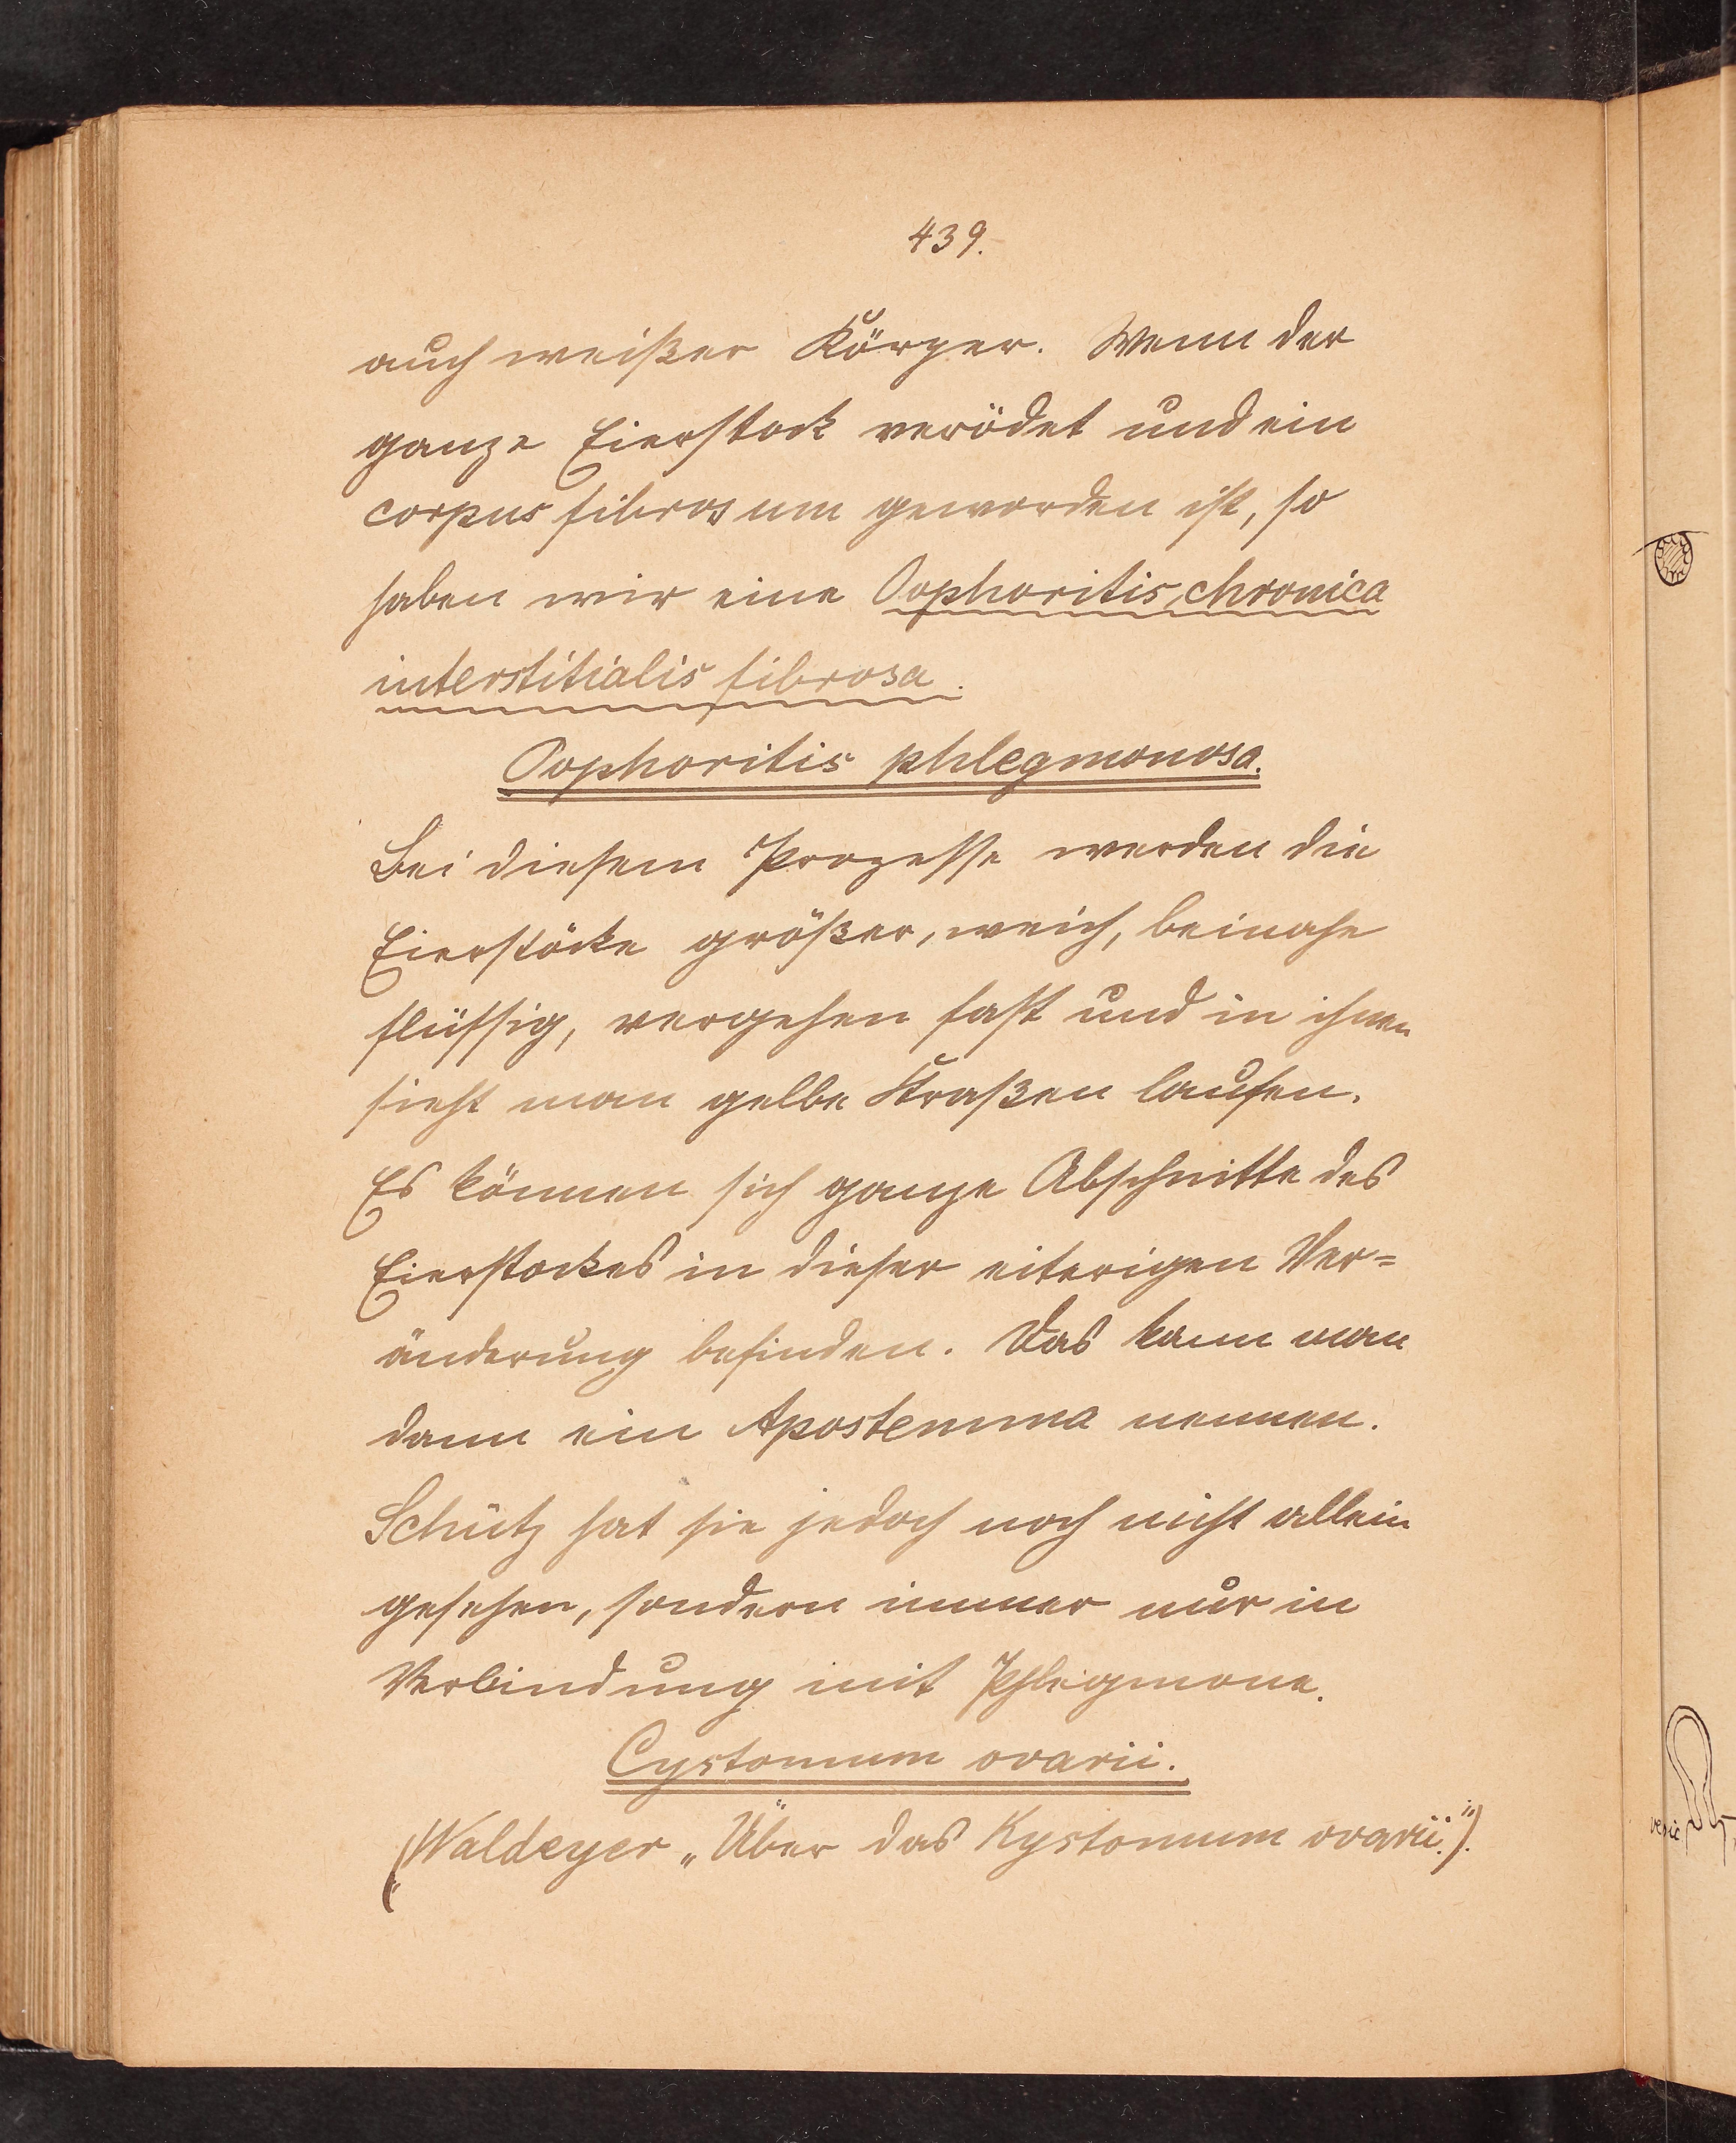 439.
auch weißer Körper. Wenn der
ganze Eierstock verödet und ein
corpus fibrosum geworden ist, so
haben wir eine Oophoritis chronica
interstitialis fibrosa.
Oophoritis phlegmonosa.
Bei diesem Prozesse werden die
Eierstöcke größer, weich, beinahe
flüssig, vergehen fast und in ihnen
sieht man gelbe Straßen laufen.
Es können sich ganze Abschnitte des
Eierstockes in dieser eiterigen Ver=
änderung befinden. Das kann man
dann ein Apostemma nennen.
Schütz hat sie jedoch noch nicht allein
gesehen, sondern immer nur in
Verbindung mit Phlegmone.
Cystomum ovarii.
(Waldeyer „Über das Kystomum ovarii.“).